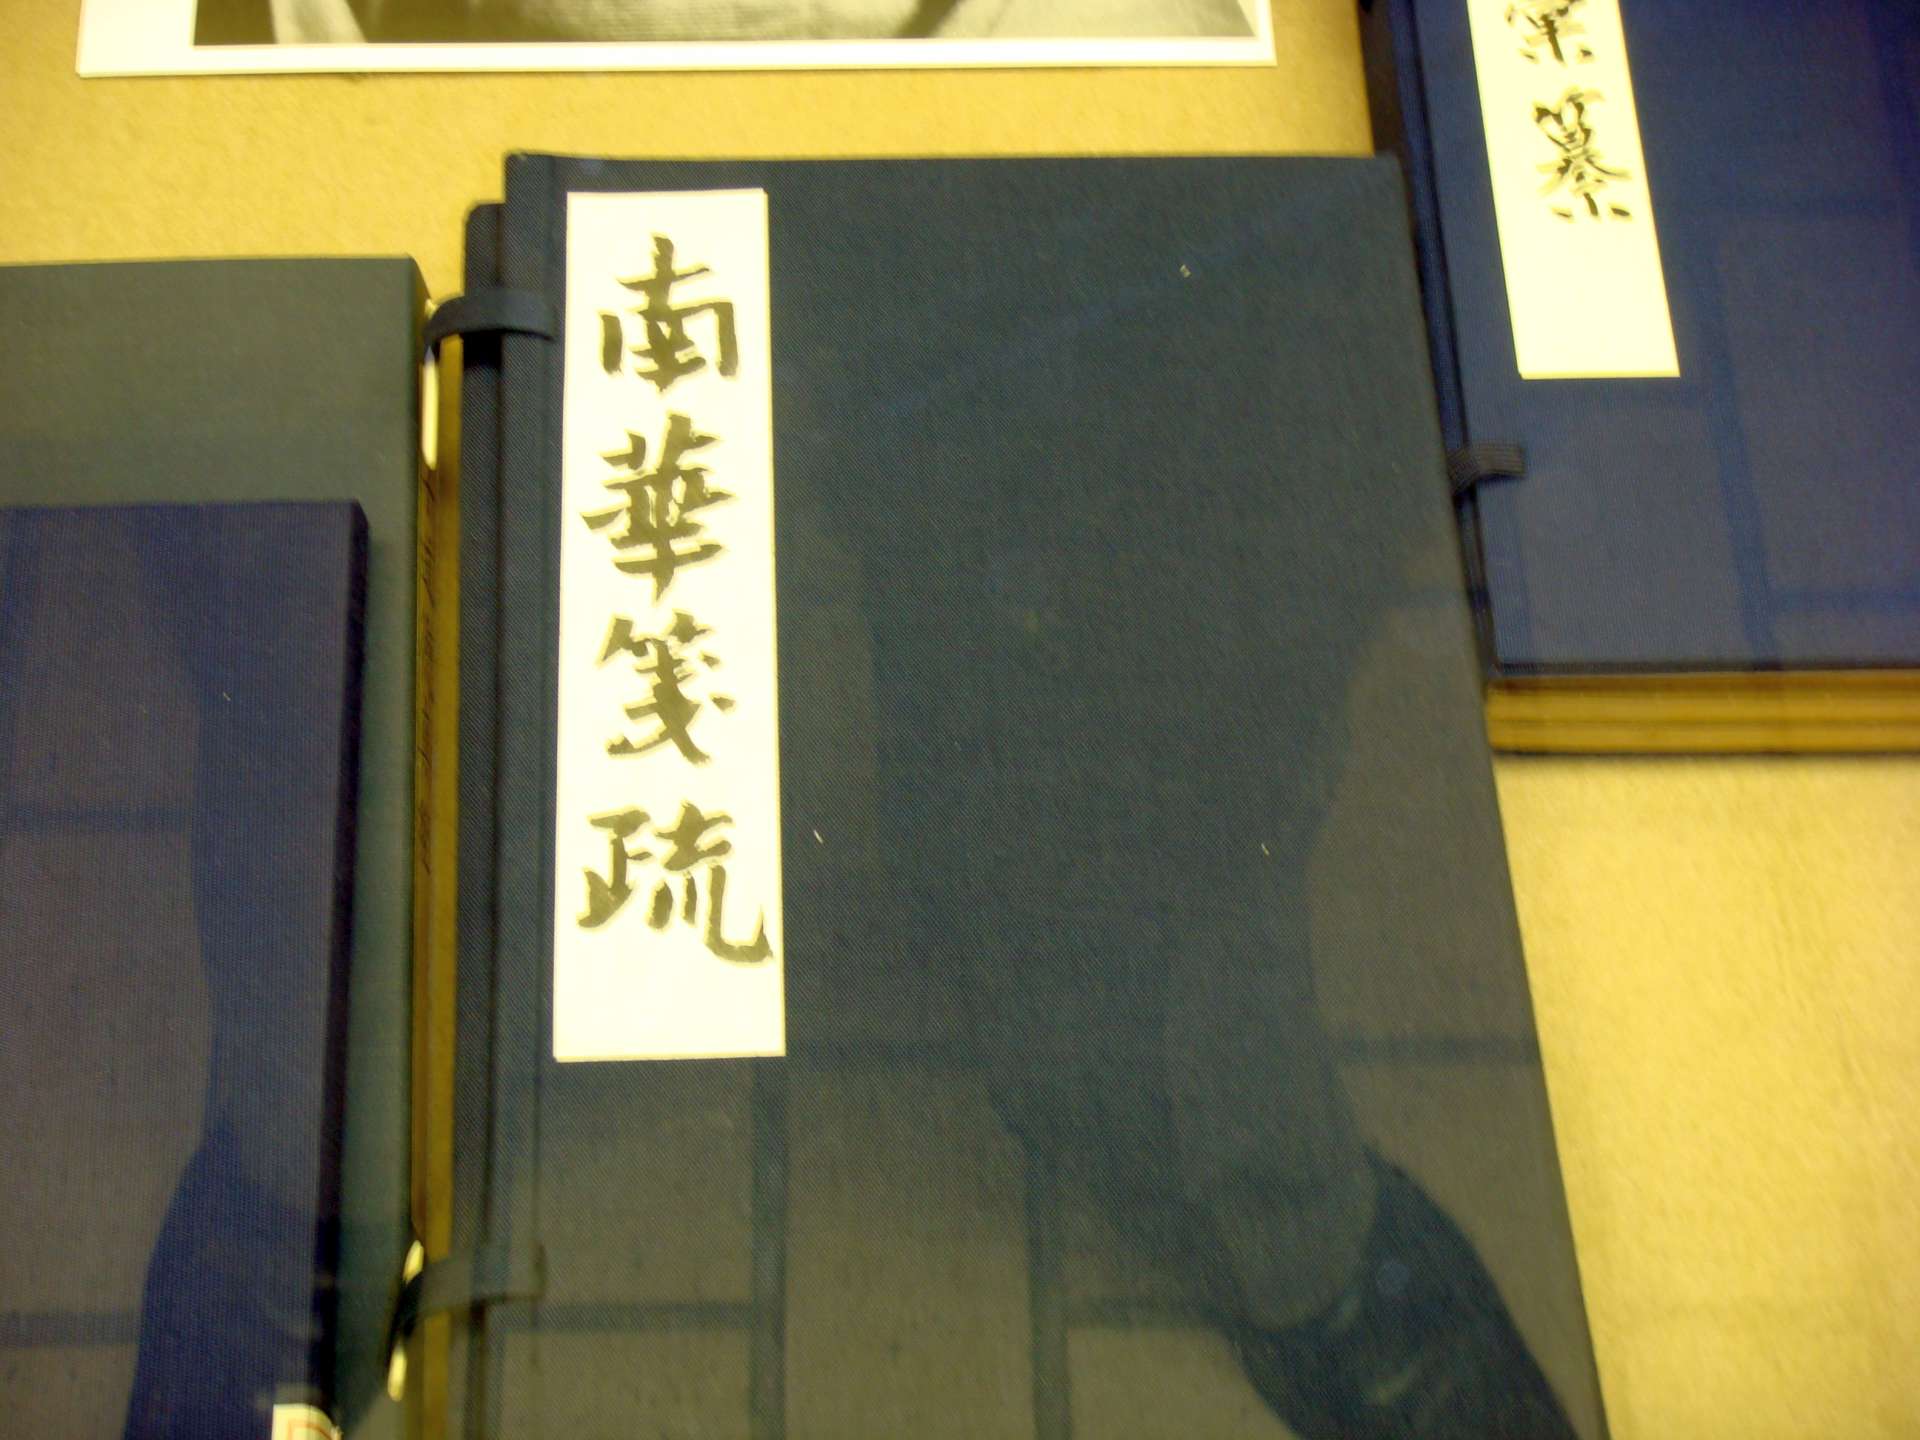 南華箋疏
纂